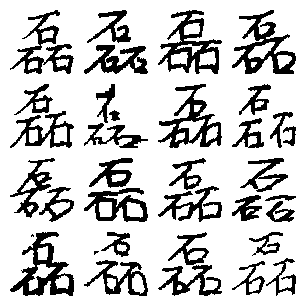 磊磊磊磊
磊磊磊磊
磊磊磊磊
磊磊磊磊